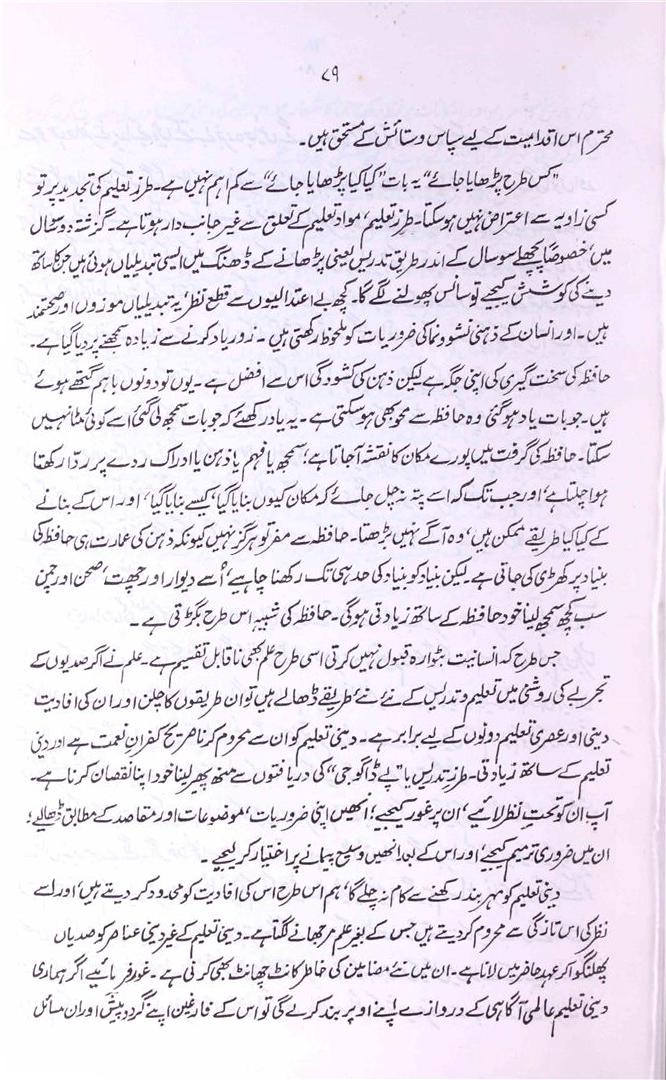 ۷۹
محترم اس اقدامیت کے لیے سپاس و ستائش کے مستحق ہیں۔
"کس طرح پڑھایا جائے" یہ بات "کیا کیا پڑھایا جائے" سے کم اہم نہیں ہے۔ طرز تعلیم کی تجدید پر تو
کسی زاویہ سے اعتراض نہیں ہوسکتا۔ طرز تعلیم، مواد تعلیم کے تعلق سے غیر جانب دار ہوتا ہے۔ گزشتہ دو سو سال
میں، خصوصاً پچھلے سو سال کے اندر طریق تدریس یعنی پڑھانے کے ڈھنگ میں ایسی تبدیلیاں ہوئی ہیں جن کا ساتھ
دینے کی کوشش کیجیے تو سانس پھولنے لگے گا۔ کچھ بے اعتدالیوں سے قطع نظر، یہ تبدیلیاں موزوں اور صحتمند
ہیں۔ اور انسان کے ذہنی نشوونما کی ضروریات کو ملحوظ رکھتی ہیں۔ زور یاد کرنے سے زیادہ سمجھنے پر دیا گیا ہے۔
حافظہ کی سخت گیری کی اپنی جگہ ہے لیکن ذہن کی کشودگی اس سے افضل ہے۔ یوں تو دونوں باہم گتھے ہوئے
ہیں۔ جو بات یاد ہوگئی وہ حافظہ سے محو بھی ہوسکتی ہے۔ یہ یاد رکھئے کہ جو بات سمجھ لی گئی اسے کوئی مٹا نہیں
سکتا۔ حافظہ کی گرفت میں پورے مکان کا نقشہ آجاتا ہے؛ سمجھ یا فہم یا ذہن یا ادراک ردے پر ردّا رکھتا
ہوا چلتا ہے، اور جب تک کہ اسے پتہ نہ چل جائے کہ مکان کیوں بنایا گیا، کیسے بنایا گیا، اور اس کے بنانے
کے کیا کیا طریقے ممکن ہیں، وہ آگے نہیں بڑھتا۔ حافظہ سے مفر تو ہرگز نہیں کیونکہ ذہن کی عمارت ہی حافظہ کی
بنیاد پر کھڑی کی جاتی ہے۔ لیکن بنیاد کو بنیاد کی حد ہی تک رکھنا چاہیے، اُسے دیوار اور چھت، صحن اور چمن
سب کچھ سمجھ لینا خود حافظہ کے ساتھ زیادتی ہوگی۔ حافظہ کی شبیہ اس طرح بگڑتی ہے۔
جس طرح کہ انسانیت بٹوارہ قبول نہیں کرتی اسی طرح علم بھی ناقابل تقسیم ہے۔ علم نے اگر صدیوں کے
تجربے کی روشنی میں تعلیم و تدریس کے نئے نئے طریقے ڈھالے ہیں تو ان طریقوں کا چلن اور ان کی افادیت
دینی اور عصری تعلیم دونوں کے لیے برابر ہے۔ دینی تعلیم کو ان سے محروم کرنا صریح کفران نعمت ہے اور دینی
تعلیم کے ساتھ زیادتی۔ طرز تدریس یا "پے ڈاگوجی" کی دریافتوں سے منھ پھیر لینا خود اپنا نقصان کرنا ہے۔
آپ ان کو تحت نظر لائیے، ان پر غور کیجیے؛ انھیں اپنی ضروریات، موضوعات اور مقاصد کے مطابق ڈھالیے؛
ان میں ضروری ترمیم کیجیے، اور اس کے بعد انھیں وسیع پیمانے پر اختیار کر لیجیے۔
دینی تعلیم کو مہر بند رکھنے سے کام نہ چلے گا، ہم اس طرح اس کی افادیت کو محدود کر دیتے ہیں، اور اسے
نظر کی اس تازگی سے محروم کر دیتے ہیں جس کے بغیر علم مرجھانے لگتا ہے۔ دینی تعلیم کے غیر دینی عناصر کو صدیاں
پھلنگوا کر عہد حاضر میں لانا ہے۔ ان میں نئے مضامین کی خاطر کانٹ چھانٹ بھی کرنی ہے۔ غور فرمائیے اگر ہماری
دینی تعلیم عالمی آگاہی کے دروازے اپنے اوپر بند کرلے گی تو اس کے فارغین اپنے گردوپیش اور ان مسائل